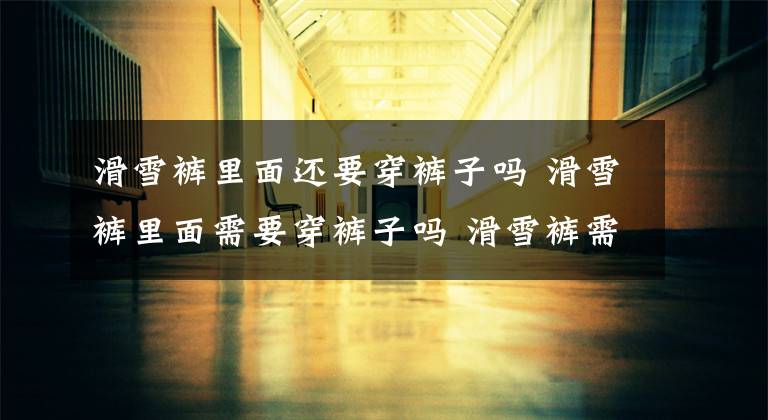 滑雪裤里面还要穿裤子吗 滑雪
裤里面需要穿裤子吗 滑雪裤需